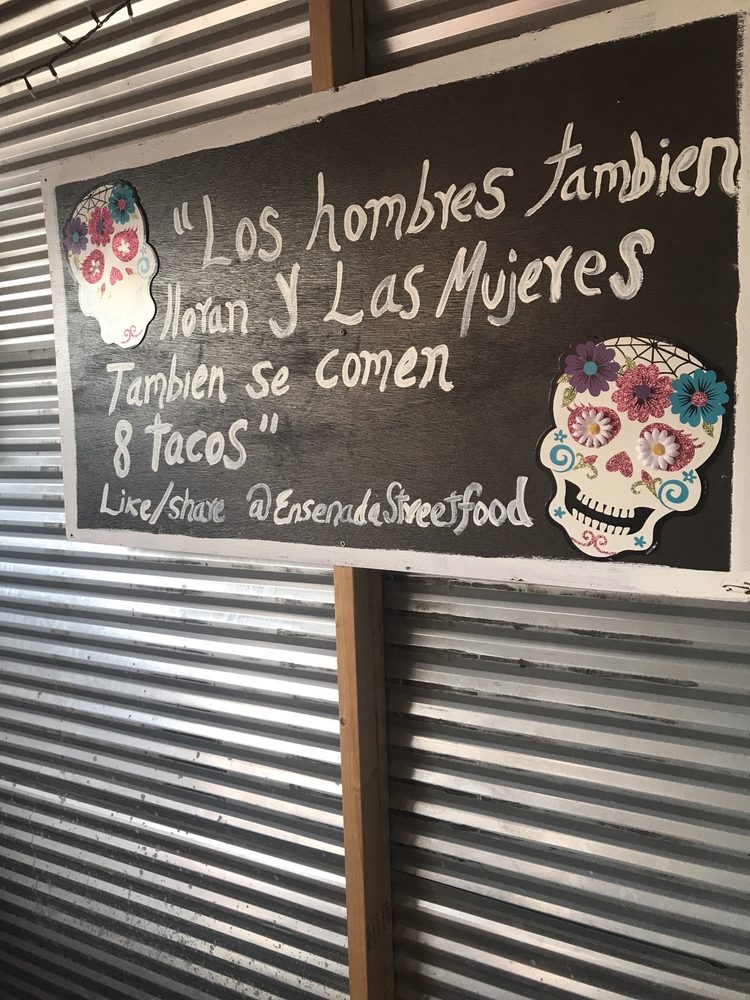 "Los hombres tambien
lloran y Las Mujeres
Tambien se comen
8 tacos"
Like/share @EnsenadaStreetfood